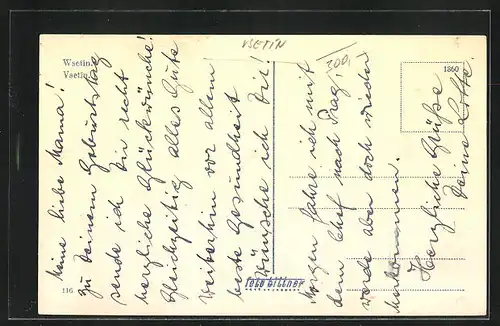 Wsetin.
Vsetín.
VSETIN
200,-
1860
Meine liebe Mama!
Zu Deinem Geburtstag
sende ich Dir recht
herzliche Glückwünsche!
Gleichzeitig alles Gute
weiterhin vor allem
beste Gesundheit
wünsche ich Dir!
Morgen fahre ich mit
dem Chef nach Prag,
werde aber doch wieder
Herzliche Grüße
Deine Lotte.
116
FOTO BITTNER